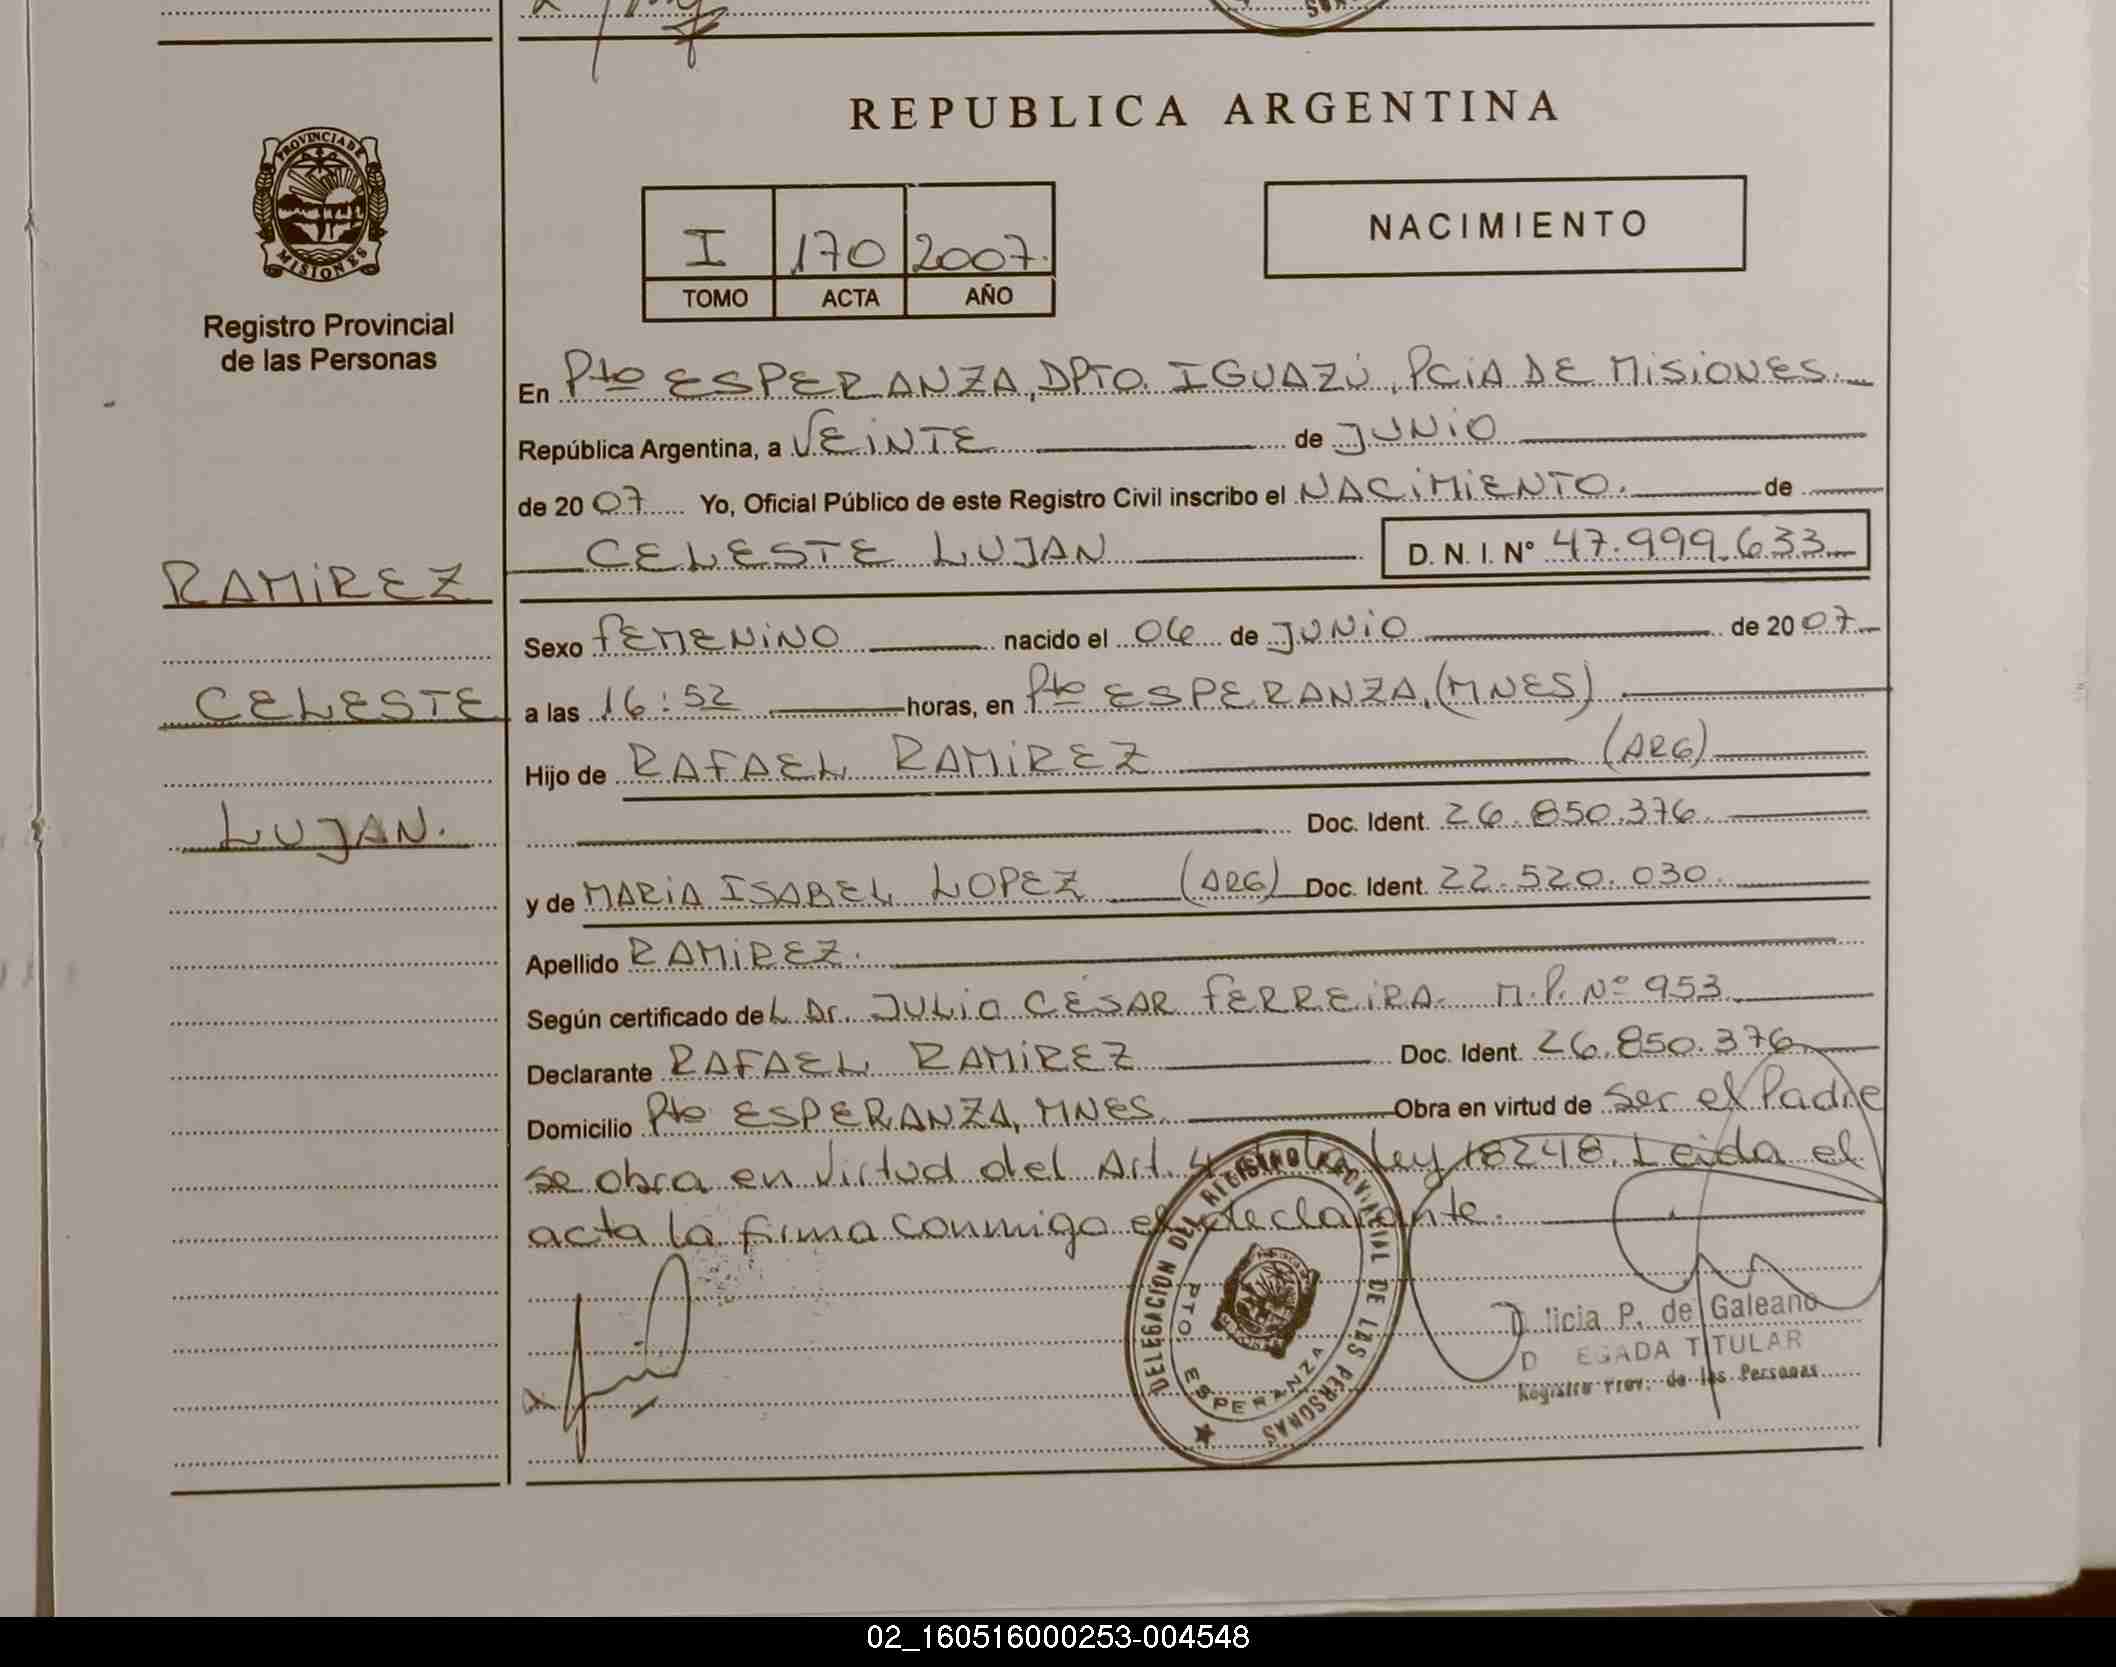 REPUBLICA ARGENTINA
PROVINCIA DE
MISIONES
Registro Provincial
de las Personas
I 170 2007.
TOMO ACTA AÑO
NACIMIENTO
En Pto ESPERANZA, DPTO. IGUAZÚ, PCIA DE MISIONES.
República Argentina, a VEINTE de JUNIO
de 2007 Yo, Oficial Público de este Registro Civil inscribo el NACIMIENTO. de
CELESTE LUJAN D. N. I. N° 47.999.633
RAMIREZ
CELESTE
LUJAN.
Sexo FEMENINO nacido el 06 de JUNIO de 2007
a las 16:52 horas, en Pto ESPERANZA, (MNES)
Hijo de RAFAEL RAMIREZ (ARG)
Doc. Ident. 26.850.376
y de MARIA ISABEL LOPEZ (ARG) Doc. Ident. 22.520.030.
Apellido RAMIREZ.
Según certificado del Dr. JULIO CÉSAR FERREIRA. M.P. Nº 953
Declarante RAFAEL RAMIREZ Doc. Ident. 26.850.376
Domicilio Pto ESPERANZA, MNES Obra en virtud de ser el Padre
se obra en virtud del Art. 4 de la ley 18248. Leida el
acta la firma conmigo el declarante.
DELEGACION DEL REGISTRO PROVINCIAL DE LAS PERSONAS
PTO. ESPERANZA
D licia P. de Galeano
D EGADA TITULAR
Registro Prov. de las Personas
02_160516000253-004548